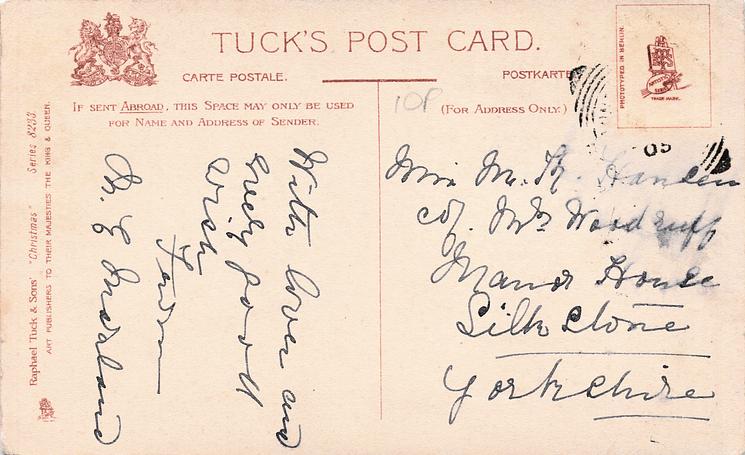 TUCK'S POST CARD.
CARTE POSTALE. POSTKARTE
IF SENT ABROAD, THIS SPACE MAY ONLY BE USED
FOR NAME AND ADDRESS OF SENDER.
10P
(FOR ADDRESS ONLY.)
PHOTOTYPED IN BERLIN.
TRADE MARK.
05
Raphael Tuck & Sons' "Christmas" Series 8233.
ART PUBLISHERS TO THEIR MAJESTIES THE KING & QUEEN.
With love and
every good
wish
from
Miss M. K.
c/o. Mrs Woodruff
Manor House
Silkstone
Yorkshire